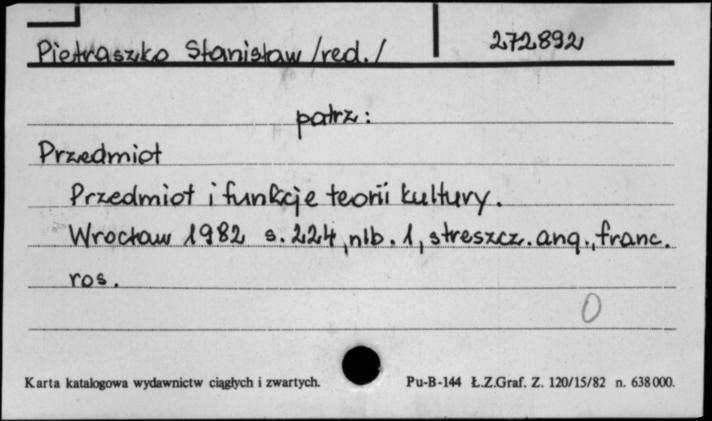 Pietraszko Stanisław /red./ 272892
patrz:
Przedmiot
Przedmiot i funkcje teorii kultury.
Wrocław 1982 s. 224, nlb. 1, streszcz. ang., franc.
ros.
0
Karta katalogowa wydawnictw ciągłych i zwartych. Pu-B-144 Ł.Z.Graf. Z. 120/15/82 n. 638000.